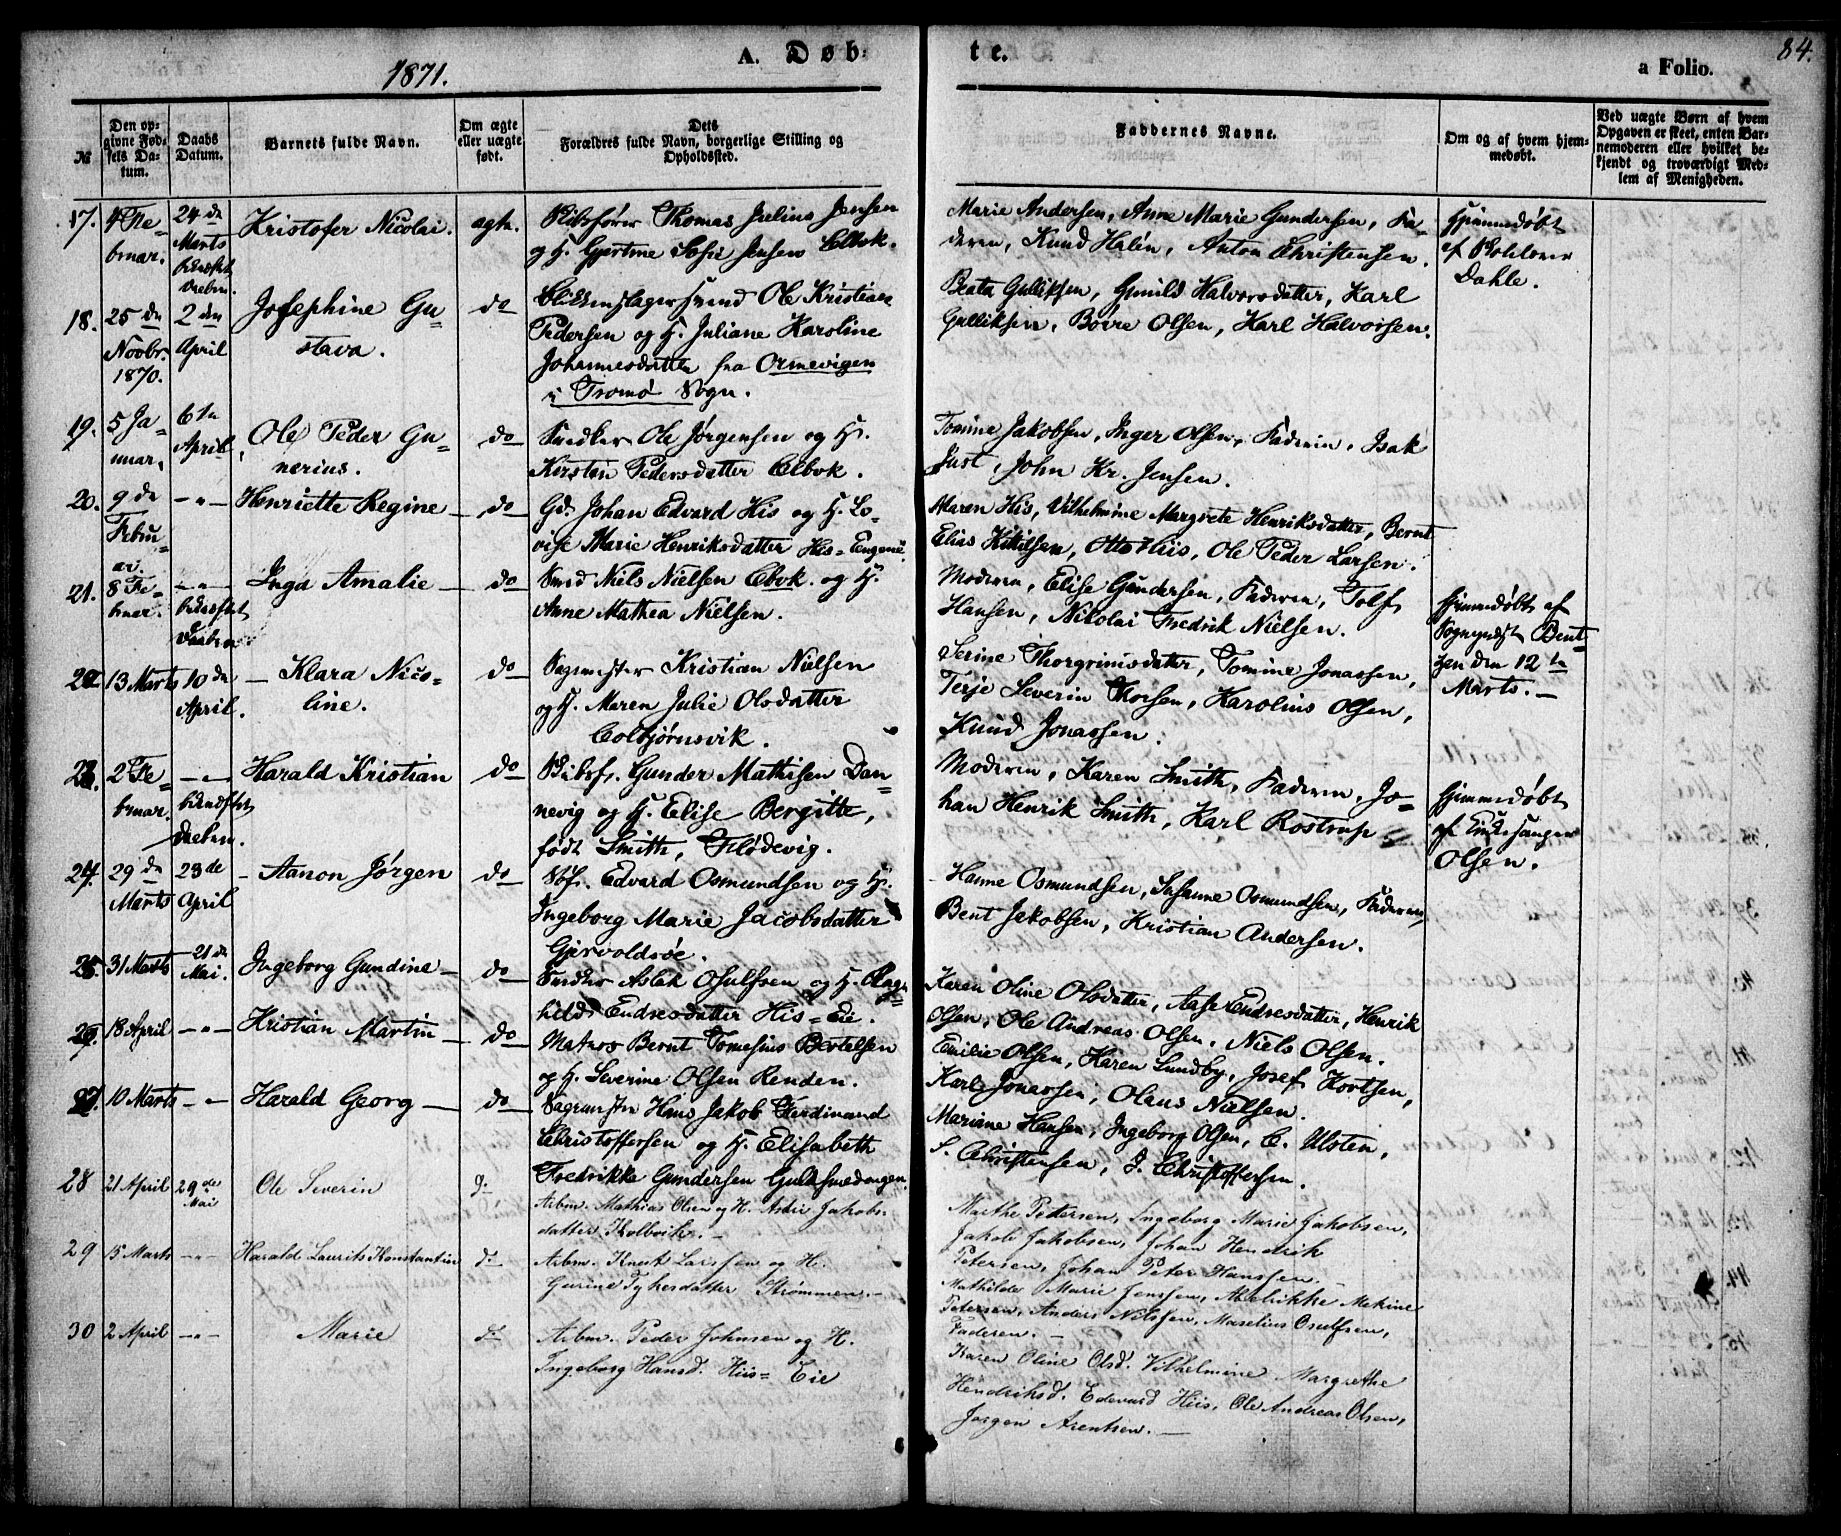 1871.
A. Døb=
te.
84.
a Folio.
№
Den op-
givne Fød-
sels Da-
tum.
Daabs
Datum.
Barnets fulde Navn.
Om ægte
eller uægte
født.
Dets
Forældres fulde Navn, borgerlige Stilling og
Opholdssted.
Faddernes Navne.
Om og af hvem hjem-
medøbt.
Ved uægte Børn af hvem
Opgaven er skeet, enten Bar-
nemoderen eller hvilket be-
kjendt og troværdigt Med-
lem af Menigheden.
17. 4 Fe-
bruar.
24 de
Marts
Kristofer Nicolai.
ægte.
Skibsfører Thomas Julius Jensen
og H. Gjertine Sofie Jensen Colbok.
Marie Andersen, Anne Marie Gundersen, Fa-
deren, Knud Halén, Anton Christensen.
Hjemmedøbt
af
Dahle.
18. 25 de
Novbr.
1870.
2 den
April
Josephine Gu-
stava.
do
Blikkenslagersvend Ole Kristian
Pedersen og H. Juliane Karoline
Johannesdatter fra Ormevigen
i Tromø Sogn.
Beata Gulliksen, Gunild Halvorsdatter, Karl
Gulliksen, Børre Olsen, Karl Halvorsen.
19. 5 Ja-
nuar.
6te
April.
Ole Peder Gu-
nerius.
do
Snedker Ole Jørgensen og H.
Kirsten Pedersdatter Colbok.
Tomine Jakobsen, Inger Olsen, Faderen, Isak
Just, John Kr. Jensen.
20. 9 de
Febru-
ar.
-"-
Henriette Regine
do
Gd. Johan Edvard His og H. Lo-
vise Marie Henriksdatter His=Eugenie
Maren His, Vilhelmine Margrete Henriksdatter, Bernt
Elias Kittilsen, Otto Hiis, Ole Peder Larsen.
21. 8 Fe-
bruar.
-"-
Inga Amalie
do
Smed Niels Nielsen Cbok. og H.
Anne Mathea Nielsen.
Moderen, Elise Gundersen, Faderen, Tolf
Hansen, Nikolai Fredrik Nielsen.
Hjemmedøbt af
Sogneprest Bent-
zen den 12 te
Marts.
22 13 Marts 10 de
April.
Klara Nico-
line.
do
Sagmester Kristian Nielsen
og H. Maren Julie Olsdatter
Colbjørnsvik.
Serine Thorgrimsdatter, Tomine Jonassen,
Terje Severin Thorsen, Karolius Olsen,
Knud Jonassen.
23. 2 Fe-
bruar.
-"-
Harald Kristian
do
Skibsf. Gunder Mathisen Dan-
nevig og H. Elise Bergitte,
født Smith, Flødevig.
Moderen, Karen Smith, Faderen, Jo-
han Henrik Smith, Karl Rostrup
Hjemmedøbt
af Kirkesanger
Olsen.
24. 29 de
Marts
23 de
April
Aanon Jørgen
do
Edvard Osmundsen og H.
Ingeborg Marie Jacobsdatter
Gjervoldsøe.
Hanne Osmundsen, Susanne Osmundsen, Faderen,
Bent Jakobsen, Kristian Andersen.
25. 31 Marts 21 de
Mai.
Ingeborg Gundine
do
Snedker Aslak Osulfsen og H. Ragn-
hild Endresdatter His=Eie.
Karen Oline Olsdatter, Aase Endresdatter, Henrik
Olsen, Ole Andreas Olsen, Niels Olsen.
26 18 April -"-
Kristian Martin
do
Matros Bernt Tomesius Bertelsen
og H. Severine Olsen Renden.
Emilie Olsen, Karen Lundby, Josef Kortsen,
Karl Jonassen, Olaus Nielsen.
27. 10 Marts -"-
Harald Georg
do
Hans Jakob Ferdinand
Christoffersen og H. Elisabeth
Fredrikke Gundersen Guldsmedengen.
Mariane Hansen, Ingeborg Olsen, C. Ulsten,
S. Christensen, J. Christoffersen.
28 21 April 29 de
Mai
Ole Severin
Arbm. Mathias Olsen og H. Jakobs-
datter Kolbvik.
Marthe Pettersen, Ingeborg Marie Jakobsen,
Jakob Jakobsen, Johan Hendrik
Petersen, Johan Peter Hanssen.
29 15 Marts -"-
Harald Laurits Konstantin
Arbm. Knut Larssen og H.
Gurine Tykesdatter Strømmen.
Mathilde Marie Jenssen, Mekine
Petersen, Anders Nilssen, Maselius Osulfsen,
Faderen.
30 2 April -"-
Marie
Arbm. Peder Johnsen og H.
Ingeborg Hansd. Hiis=Eie
Karen Oline Olsd. Vilhelmine Margrethe
Hendriksd. Edevard Hiis, Ole Andreas Olsen,
Jørgen Arentsen.